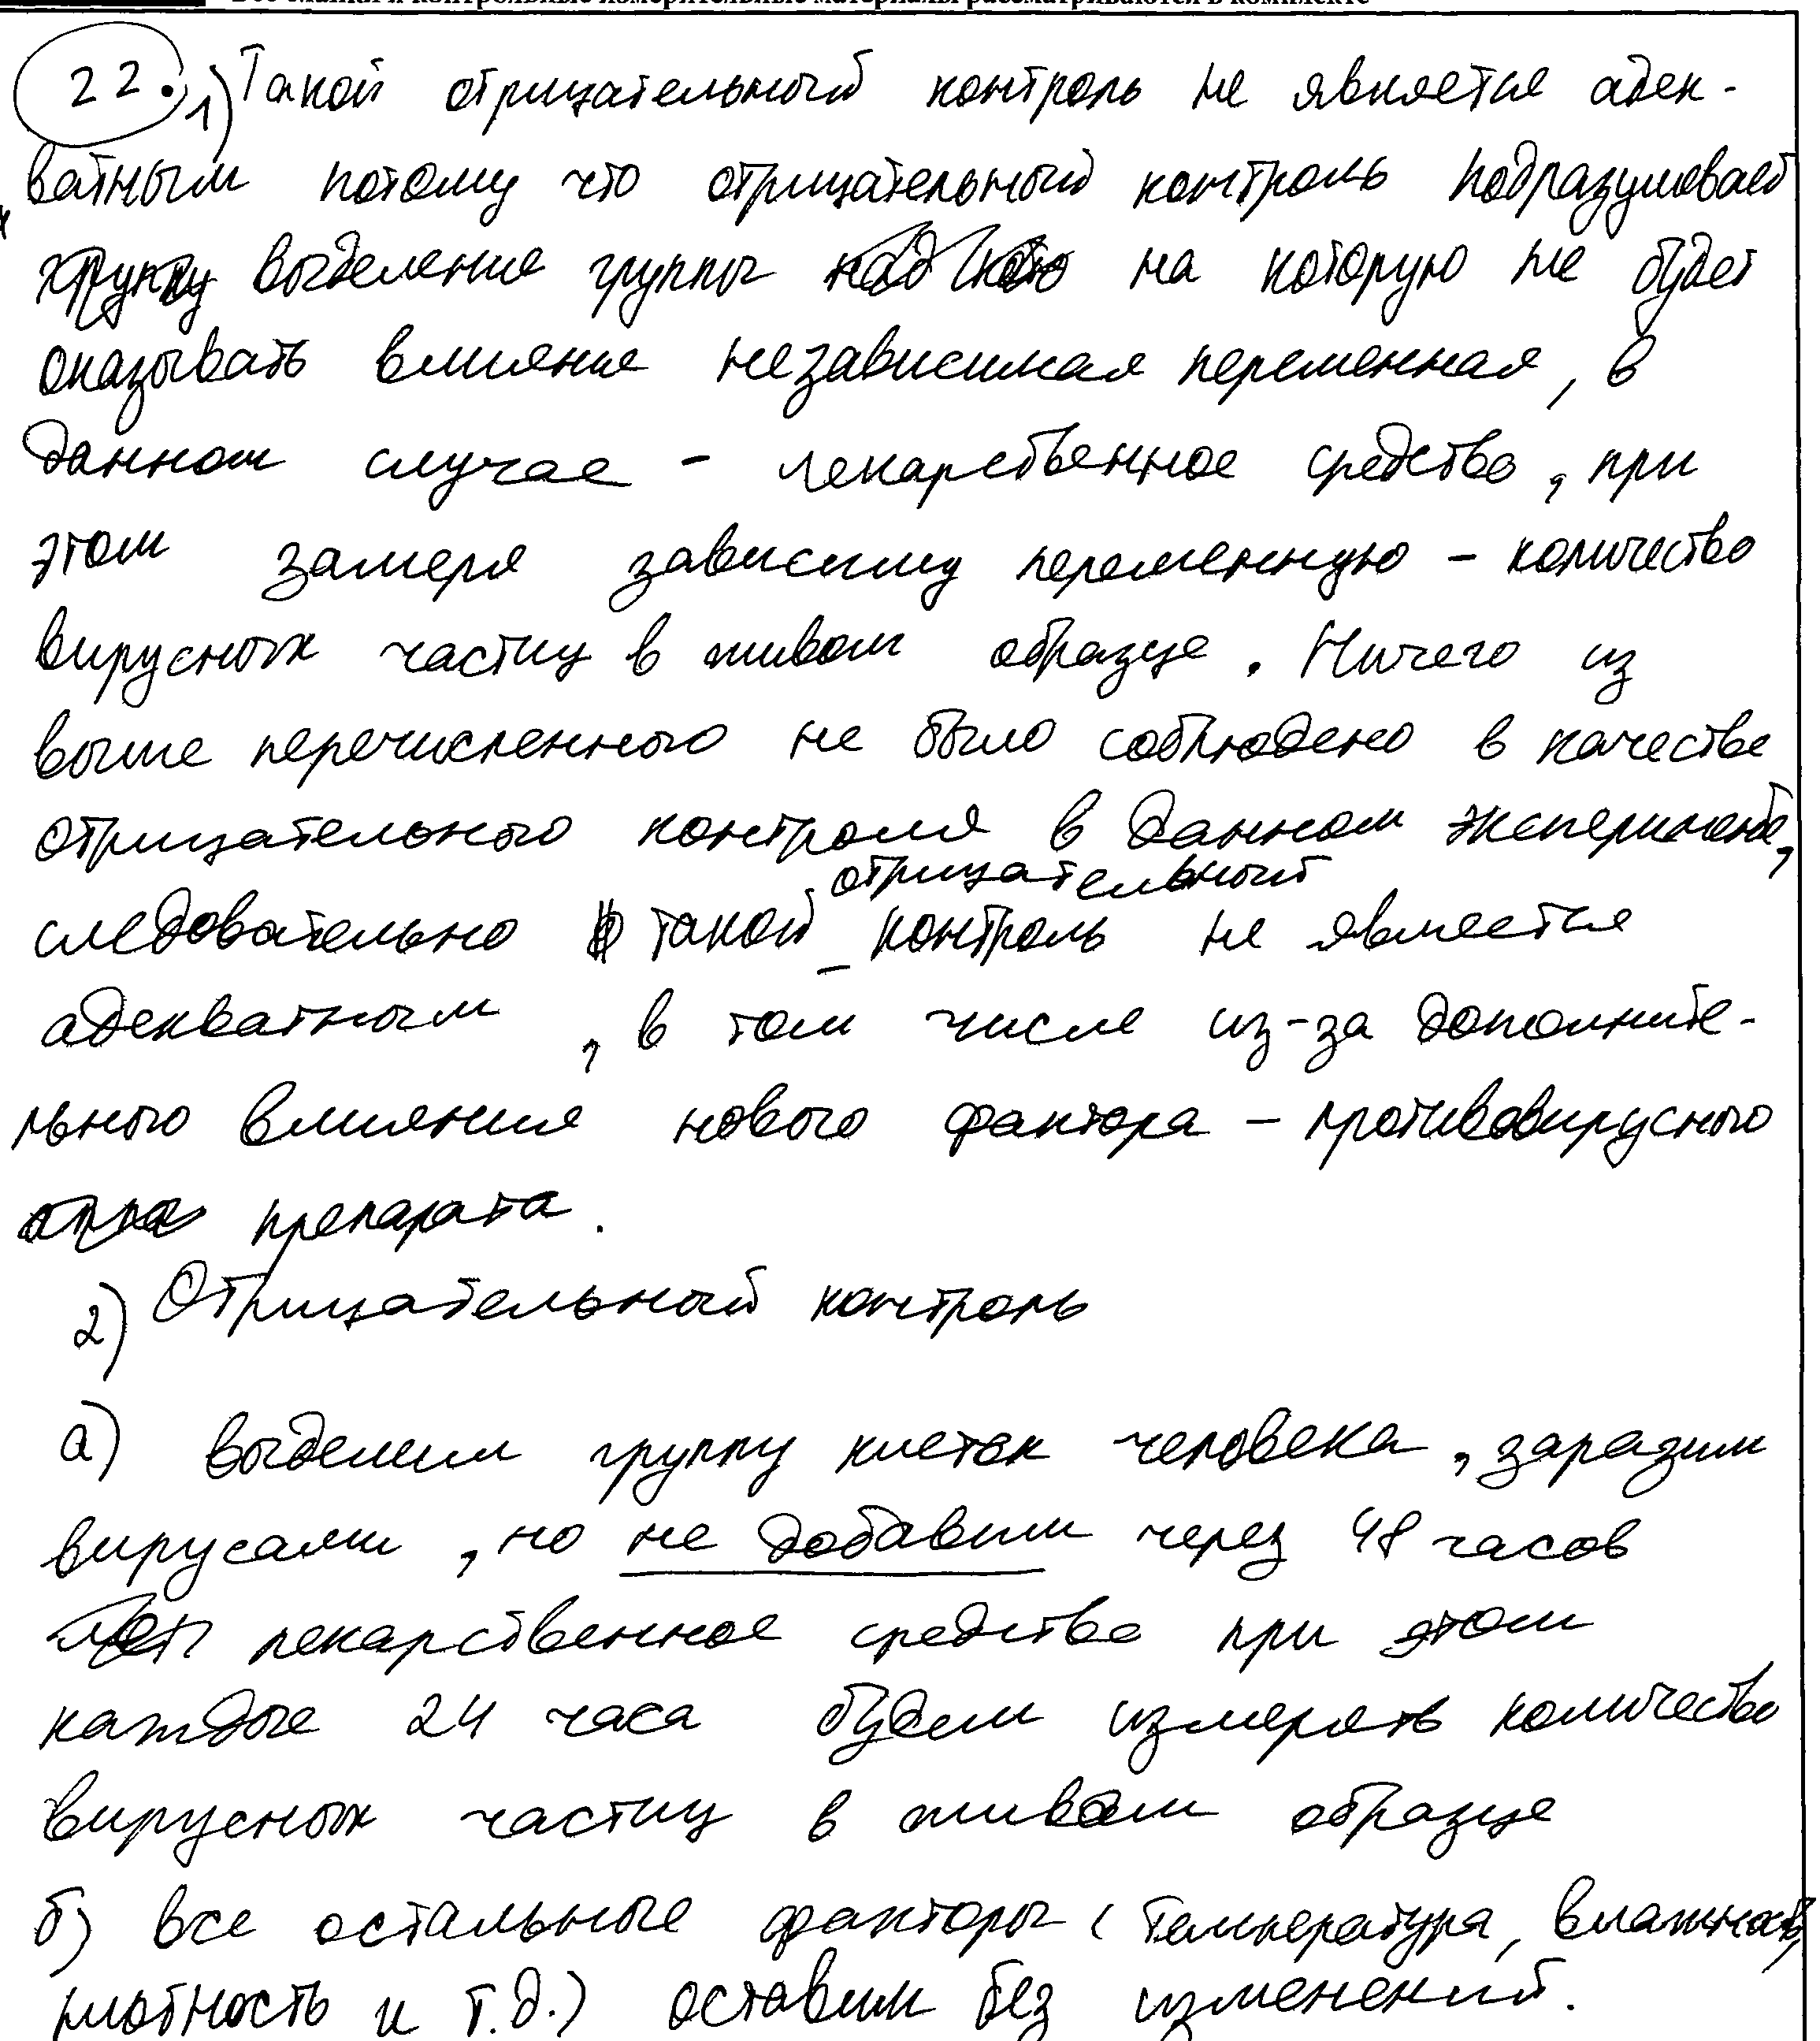 Все бланки и контрольные измерительные материалы рассматриваются в комплекте
22. 1) Такой отрицательный контроль не является адек-
ватным потому что отрицательный контроль подразумевает
группу выделение группы на которую не будет
оказывать влияние независимая переменная, в
данном случае - лекарственное средство, при
этом замеря зависиму переменную - количество
вирусных частиц в живом образце. Ничего из
выше перечисленного не было соблюдено в качестве
отрицательного контроля в данном эксперименте,
отрицательный
следовательно такой контроль не является
адекватным, в том числе из-за дополните-
льного влияния нового фактора - противовирусного
препарата.
2) Отрицательный контроль
а) выделим группу клеток человека, заразим
вирусами, но не добавим через 48 часов
лекарственное средство при этом
каждые 24 часа будем измерять количество
вирусных частиц в живом образце
б) все остальные факторы (температура, влажность,
плотность и т.д.) оставим без изменений.